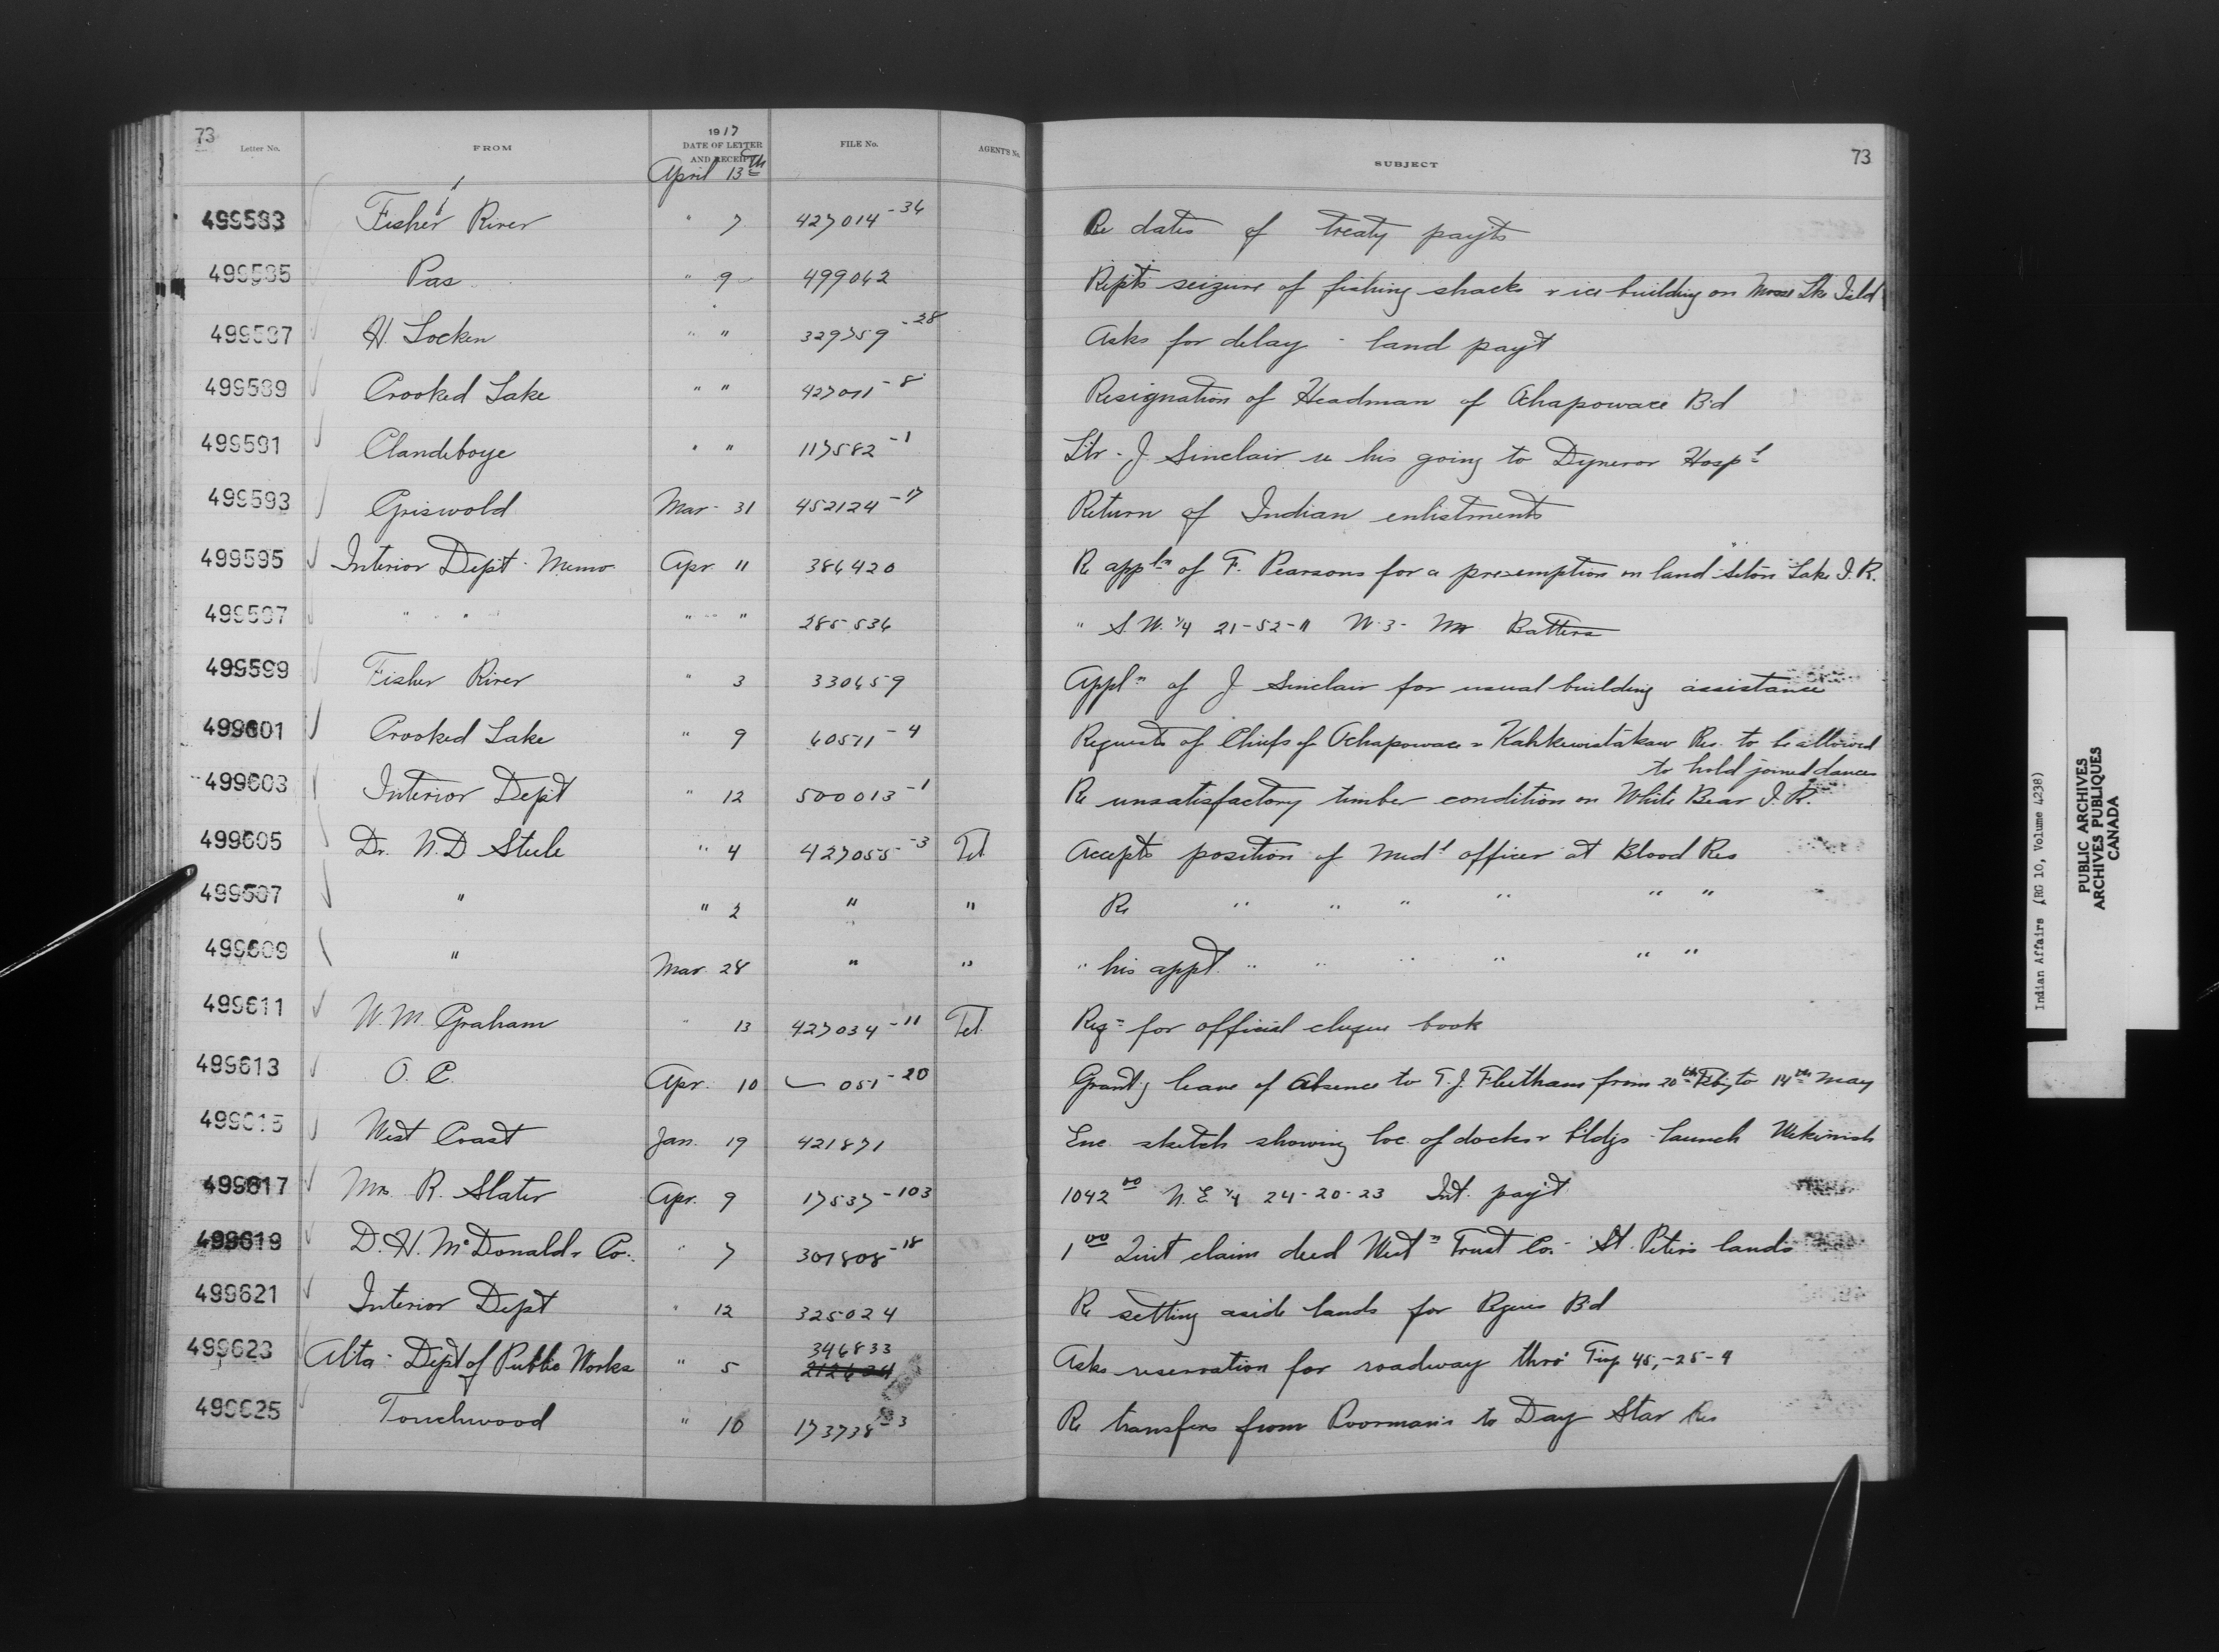 73
Letter No. FROM 1917 DATE OF LETTER AND RECEIPT FILE No. AGENT'S No. SUBJECT 73
April 13th
499583 Fisher River " 7 427014-36 Re dates of treaty payts
499585 Pas " 9 499042 Repts seizure of fishing shacks & ice building on Moose Lke Isld
499587 H. Locken " " 329759-28 Asks for delay - land payt
499589 Crooked Lake " " 427011-8 Resignation of Headman of Ochapowace Bd
499591 Clandeboye " " 117582-1 Ltr - J Sinclair re his going to Dynevor Hospl
499593 Griswold Mar - 31 452124-17 Return of Indian enlistments
499595 Interior Dept - Memo Apr 11 386420 Re appln of F. Pearsons for a pre-emption on land Seton Lake I.R.
499597 " " " " 285536 " S.W. 1/4 21-52-11 W-3- Mr Batters
499599 Fisher River " 3 330659 Appln of J Sinclair for usual building assistance
499601 Crooked Lake " 9 60511-4 Requests of Chiefs of Ochapowace & Kahkewistahaw Res. to be allowed
to hold joined dances
499603 Interior Dept " 12 500013-1 Re unsatisfactory timber condition on White Bear I.R.
499605 Dr. N. D Steele " 4 427055-3 Tel Accepts position of Medl officer at Blood Res
499607 " " 2 " " Re " " " " " "
499609 " Mar 28 " " " his appt. " " " " " "
499611 W. M. Graham " 13 427034-11 Tel. Reqn for official cheque book
499613 O. C. Apr. 10 051-20 Grantg leave of Absence to T. J. Fleetham from 20th Feby to 14th May
499615 West Coast Jan. 19 421871 Enc. sketch showing loc. of docks & bldgs - launch Wekinish
499617 Mrs R. Slater Apr. 9 17537-103 1042 00 N. E 1/4 24-20-23 Int. payt
499619 D. H. McDonald & Co. " 7 301808-18 1 00 Quit claim deed Westn Trust Co. - St. Peters lands
499621 Interior Dept " 12 325024 Re setting aside lands for Peguis Bd
346833
499623 Alta - Dept of Public Works " 5 212624 Asks reservation for roadway thro' Twp 45,-25-4
499625 Touchwood " 10 173738-3 Re transfers from Poorman's to Day Star Res
Indian Affairs (RG 10, Volume 4238)
PUBLIC ARCHIVES
ARCHIVES PUBLIQUES
CANADA